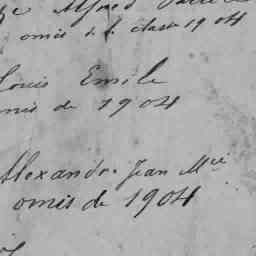 Alfred
omis de la classe 1904
Louis Emile
omis de 1904
Alexandre Jean Mie
omis de 1904